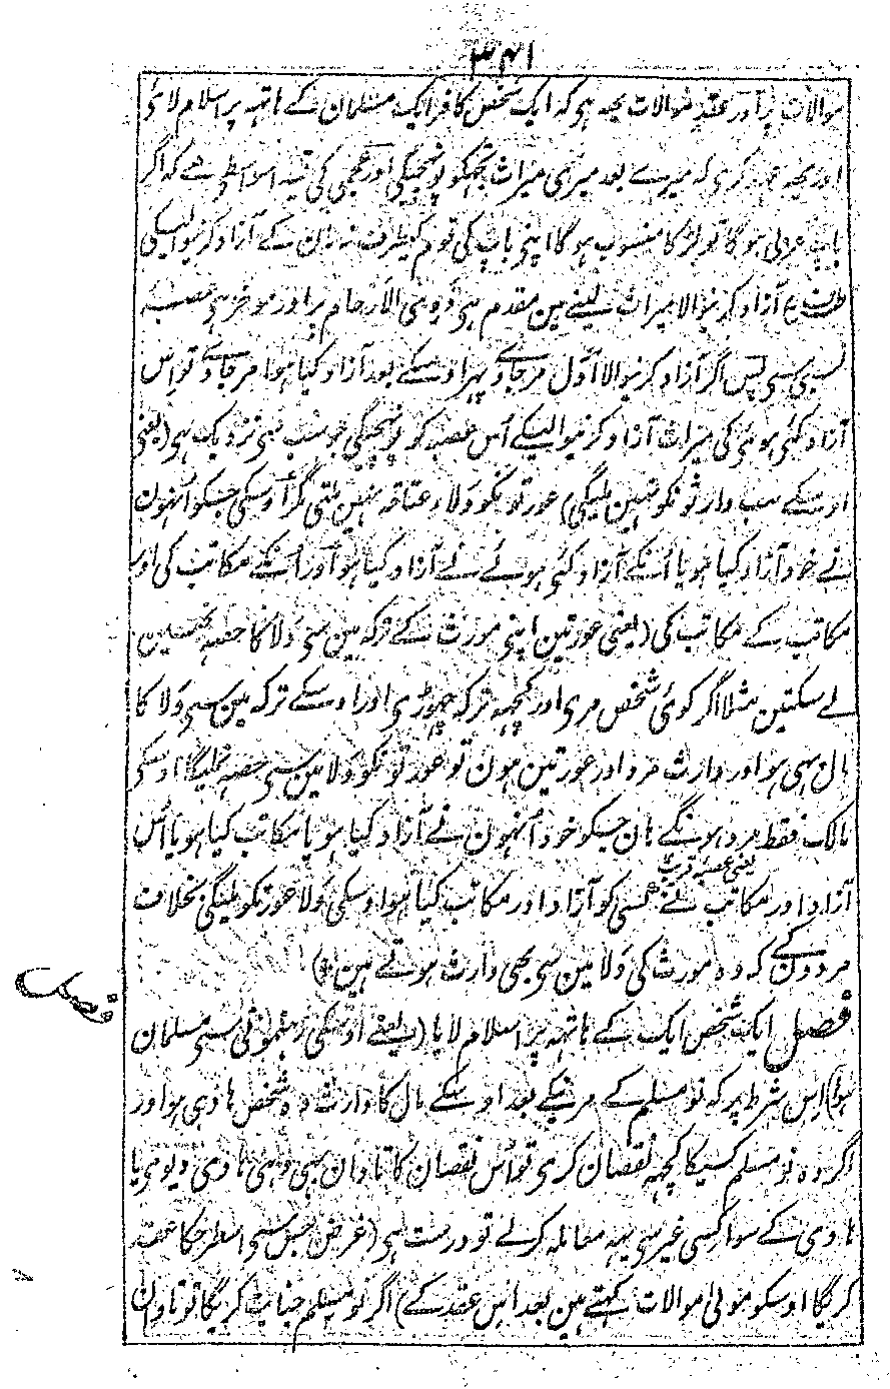 ۳۴۱
موالات پر اور عقد موالات یہہ ہی کہ ایک شخص کافر ایک مسلمان کے ہاتہہ پر اسلام لائی
اور یہہ عہد کری کہ میرے بعد میری میراث تجہکو پونچیگی اور عجمی کی قید اسواسطی ہے کہ اگر
باپ عربی ہو گا تو لڑکا منسوب ہو گا اپنی باپ کی قوم کیطرف نہ مان کے آزاد کرنیوالیکی
طرف ع آزاد کرنیوالا میراث لینے مین مقدم ہی ذوی الارحام پر اور موخر ہی عصبہ
نسبی سی پس اگر آزاد کرنیوالا اول مر جاوے پہر اوسکے بعد آزاد کیا ہوا مر جاوے تو اس
آزاد کئی ہوئی کی میراث آزاد کرنیوالیکے اس عصبہ کو پونچیگی جو سب سی نزدیک ہی (یعنی
اوسکے سب وارثونکو نہین ملیگی) عورتونکو ولاء عتاقہ نہین ملتی مگر اوسکی جسکو اُنہون
نے خود آزاد کیا ہو یا اُنکے آزاد کئی ہوئے نے آزاد کیا ہو اور اُنکے مکاتب کی اور
مکاتب کے مکاتب کی (یعنی عورتین اپنی مورث کے ترکہ مین سی ولا کا حصہ نہین
لے سکتین مثلا اگر کوئی شخص مری اور کچہہ ترکہ چہوڑی اور اوسکے ترکہ مین سی ولا کا
مال بہی ہو اور وارث مرد اور عورتین ہون تو عورتونکو ولا مین سی حصہ نملیگا اوسکی
مالک فقط مرد ہونگے ہان جسکو خود اُنہون نے آزاد کیا ہو یا مکاتب کیا ہو یا اُس
آزاد اور مکاتب نے کسی کو آزاد اور مکاتب کیا ہو اوسکی ولا عورتونکو ملیگی بخلاف
مردون کے کہ وہ مورث کی ولا مین سی بہی وارث ہوتے ہین)
فصل ایک شخص ایک کے ہاتہہ پر اسلام لایا (یعنے اوسکی رہنمونی سی مسلمان
ہوا) اس شرط پر کہ نو مسلم کے مرنیکے بعد اوسکے مال کا وارث وہ شخص ہادی ہو اور
اگر وہ نو مسلم کسیکا کچہہ نقصان کری تو اُس نقصان کا تاوان بہی وہی ہادی دیوی یا
ہادی کے سوا کسی غیر سی یہہ معاملہ کرلے تو درست ہی (غرض جس سی اسطرحکا عقد
کریگا اوسکو مولی موالات کہتے ہین بعد اس عقد کے) اگر نو مسلم جنایت کریگا تو تاوان
فصل